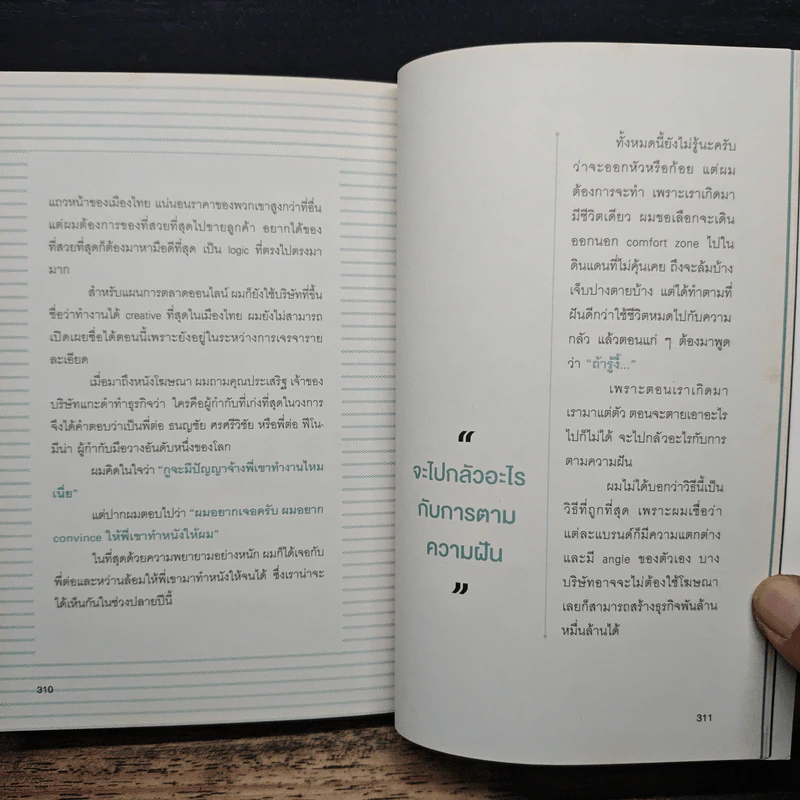 แถวหน้าของเมืองไทย แน่นอนราคาของพวกเขาสูงกว่าที่อื่น
แต่ผมต้องการของที่สวยที่สุดไปขายลูกค้า อยากได้ของ
ที่สวยที่สุดก็ต้องมาหามือดีที่สุด เป็น logic ที่ตรงไปตรงมา
มาก
สำหรับแผนการตลาดออนไลน์ ผมก็ยังใช้บริษัทที่ขึ้น
ชื่อว่าทำงานได้ creative ที่สุดในเมืองไทย ผมยังไม่สามารถ
เปิดเผยชื่อได้ตอนนี้เพราะยังอยู่ในระหว่างการเจรจาราย
ละเอียด
เมื่อมาถึงหนังโฆษณา ผมถามคุณประเสริฐ เจ้าของ
บริษัทแกะดำทำธุรกิจว่า ใครคือผู้กำกับที่เก่งที่สุดในวงการ
จึงได้คำตอบว่าเป็นพี่ต่อ ธนญชัย ศรศรีวิชัย หรือพี่ต่อ ฟีโน-
มีน่า ผู้กำกับมือวางอันดับหนึ่งของโลก
ผมคิดในใจว่า “กูจะมีปัญญาจ้างพี่เขาทำงานไหม
เนี่ย”
แต่ปากผมตอบไปว่า “ผมอยากเจอครับ ผมอยาก
convince ให้พี่เขาทำหนังให้ผม”
ในที่สุดด้วยความพยายามอย่างหนัก ผมก็ได้เจอกับ
พี่ต่อและหว่านล้อมให้พี่เขามาทำหนังให้จนได้ ซึ่งเราน่าจะ
ได้เห็นกันในช่วงปลายปีนี้
310
“
จะไปกลัวอะไร
กับการตาม
ความฝัน
”
ทั้งหมดนี้ยังไม่รู้นะครับ
ว่าจะออกหัวหรือก้อย แต่ผม
ต้องการจะทำ เพราะเราเกิดมา
มีชีวิตเดียว ผมขอเลือกจะเดิน
ออกนอก comfort zone ไปใน
ดินแดนที่ไม่คุ้นเคย ถึงจะล้มบ้าง
เจ็บปางตายบ้าง แต่ได้ทำตามที่
ฝันดีกว่าใช้ชีวิตหมดไปกับความ
กลัว แล้วตอนแก่ ๆ ต้องมาพูด
ว่า “ถ้ารู้งี้...”
เพราะตอนเราเกิดมา
เรามาแต่ตัว ตอนจะตายเอาอะไร
ไปก็ไม่ได้ จะไปกลัวอะไรกับการ
ตามความฝัน
ผมไม่ได้บอกว่าวิธีนี้เป็น
วิธีที่ถูกที่สุด เพราะผมเชื่อว่า
แต่ละแบรนด์ก็มีความแตกต่าง
และมี angle ของตัวเอง บาง
บริษัทอาจจะไม่ต้องใช้โฆษณา
เลยก็สามารถสร้างธุรกิจพันล้าน
หมื่นล้านได้
311